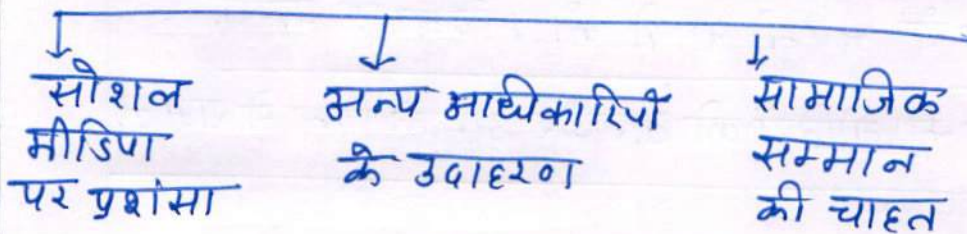 सोशल
मीडिया
पर प्रशंसा
अन्य अधिकारियों
के उदाहरण
सामाजिक
सम्मान
की चाहत